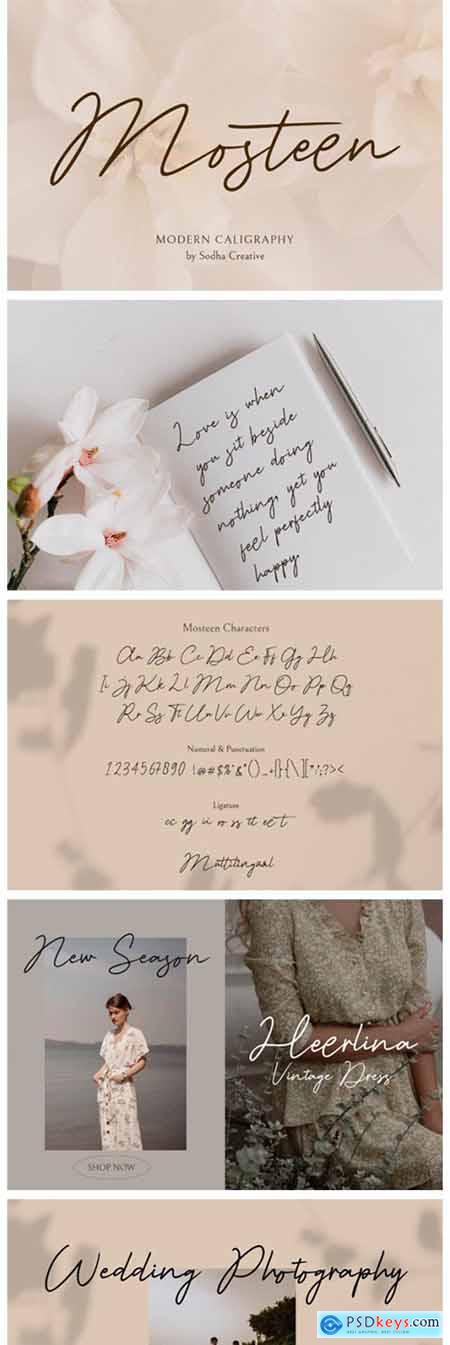 Mosteen
MODERN CALIGRAPHY
by Sodha Creative
Love is when
you sit beside
someone doing
nothing, yet you
feel perfectly
happy
Mosteen Characters
Aa Bb Cc Dd Ee Ff Gg Hh
Ii Jj Kk Ll Mm Nn Oo Pp Qq
Rr Ss Tt Uu Vv Ww Xx Yy Zz
Numeral & Punctuation
1234567890
Ligature
Multilingual
New Season
SHOP NOW
Heerlina
Vintage Dress
Wedding Photography
PSDkeys.com